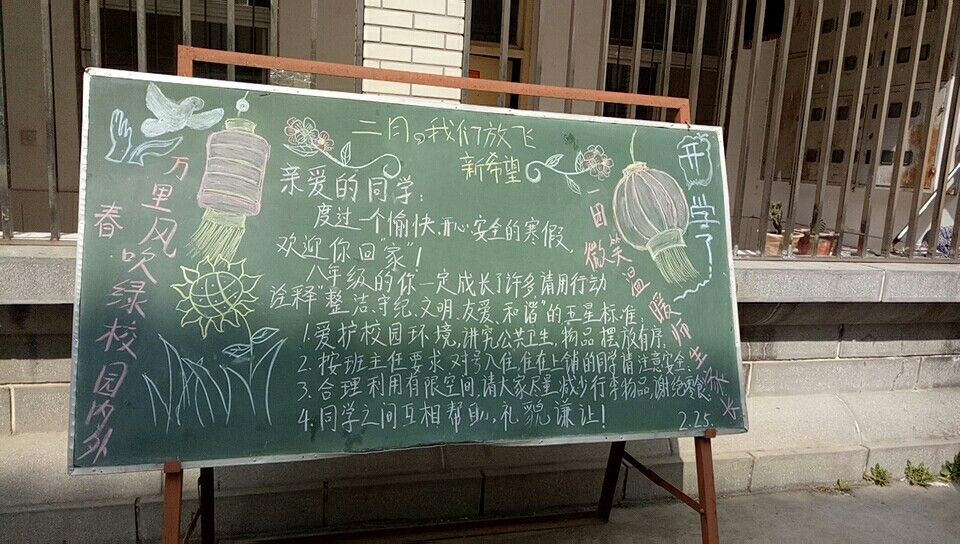 二月。我们放飞
新希望
开学了
万里春风吹绿校园内外
亲爱的同学：
度过一个愉快、开心、安全的寒假，
欢迎你回"家"！
八年级的你一定成长了许多请用行动
诠释"整洁、守纪、文明、友爱、和谐"的五星标准，
1.爱护校园环境，讲究公共卫生，物品摆放有序，
2.按班主任要求对号入住，住在上铺的同学请注意安全，
3.合理利用有限空间，请大家尽量减少行李物品，谢绝零食，
4.同学之间互相帮助，礼貌谦让！
2.25
微笑温暖师生